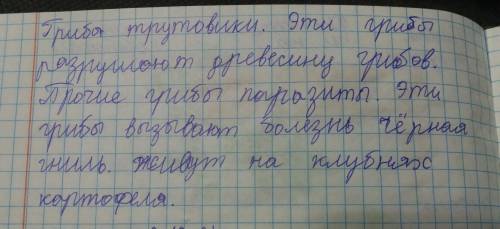 Гриба трутовики. Эти грибы
разрушают древесину грибов.
Прочие грибы паразиты. Эти
грибы вызывают болезнь чёрная
гниль. живут на клубнях
картофеля.